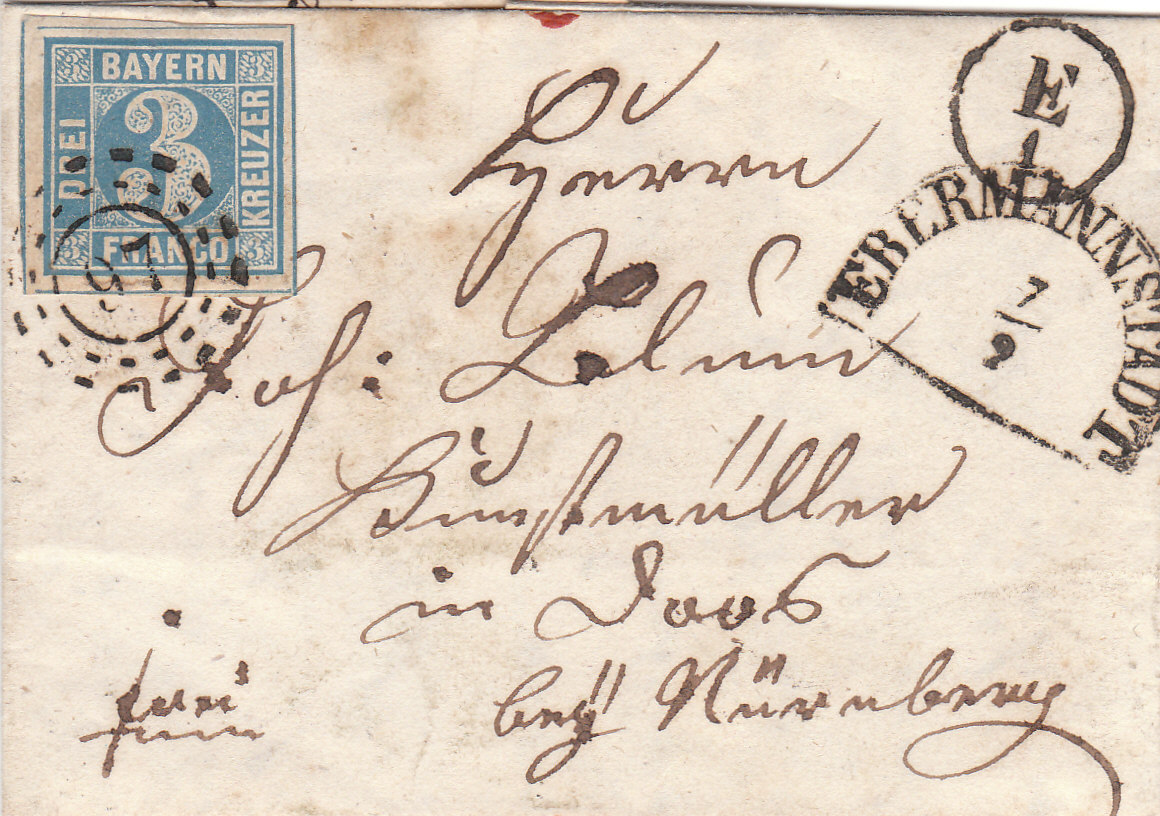 BAYERN
3 3
DREI
3
KREUZER
FRANCO
3 3
97
E
1
EBERMANNSTADT
7
9
Herrn
Joh:
Kunstmüller
in Doos
frei
bey Nürnberg